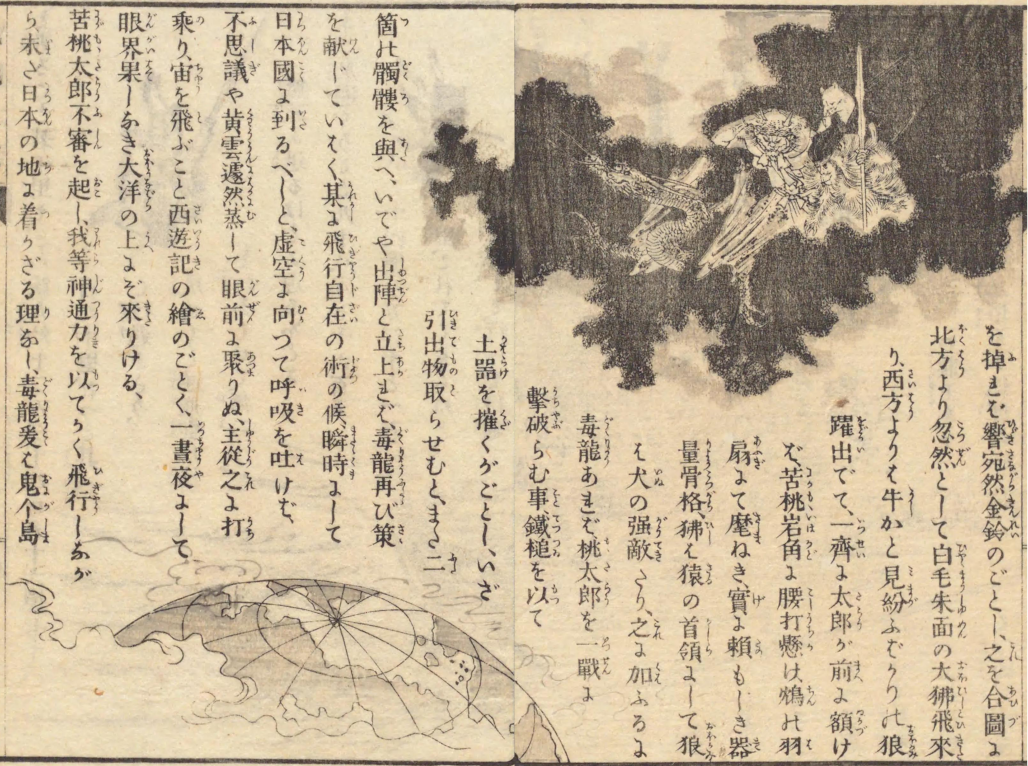 を掉れば響宛然金鈴のごとし、之を合圖に
北方より忽然として白毛朱面の大狒飛來
り、西方よりは牛かと見紛ふばかりの狼
躍出でて、一齊に太郎が前に額け
ば苦桃岩角に腰打懸け鴆の羽
扇にて麾ねき、實に頼もしき器
量骨格、狒は猿の首領にして狼
は犬の强敵たり、之に加ふるに
毒龍あれば桃太郎を一戰に
擊破らむ事、鐵槌を以て
土器を摧くがごとし、いざ
引出物取らせむと、また二
箇の髑髏を與へ、いでや出陣と立上れば、毒龍再び策
を献じていはく、某に飛行自在の術の候、瞬時にして
日本國に到るべしと、虚空に向つて呼吸を吐けば、
不思議や黄雲遽然蒸して眼前に聚りぬ、主從之に打
乘り、宙を飛ぶこと西遊記の繪のごとく、一晝夜にして
眼界果しなき大洋の上にぞ來りける、
苦桃太郎不審を起し、我等神通力を以てかく飛行しなが
ら、未だ日本の地に着かざる理なし、毒龍爰は鬼个島